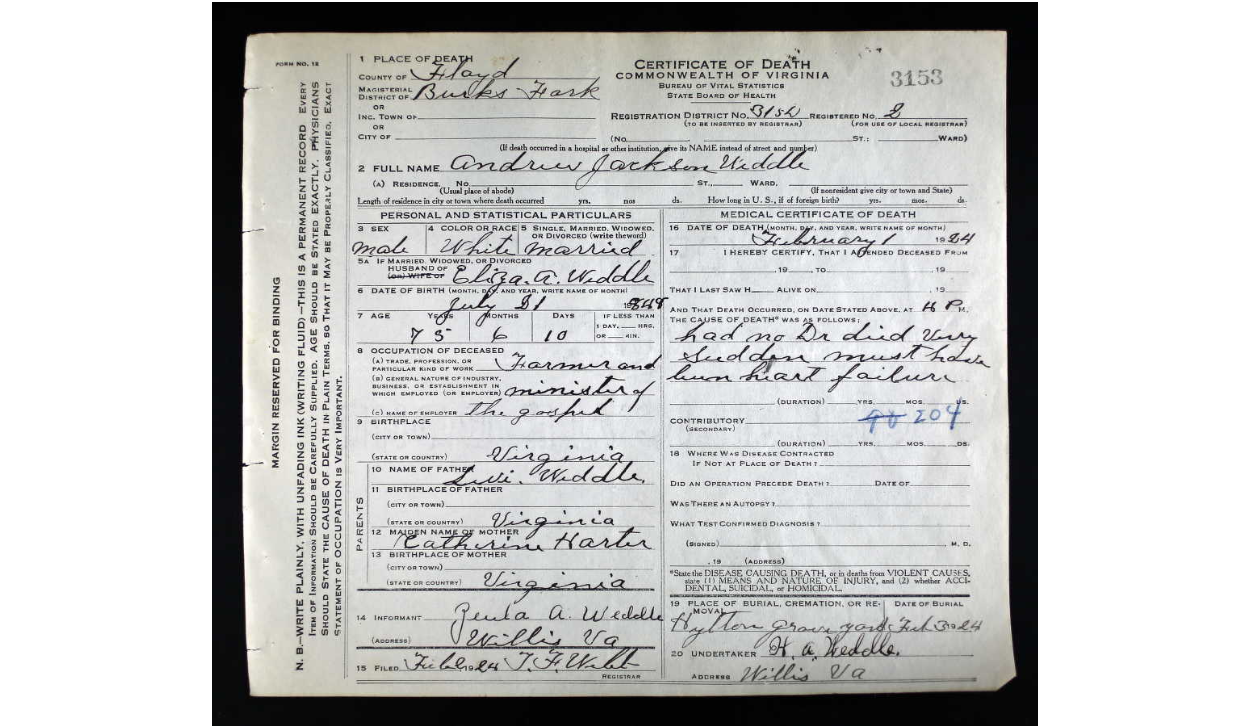 FORM NO. 12
MARGIN RESERVED FOR BINDING
N. B.—WRITE PLAINLY, WITH UNFADING INK (WRITING FLUID)—THIS IS A PERMANENT RECORD EVERY
ITEM OF INFORMATION SHOULD BE CAREFULLY SUPPLIED. AGE SHOULD BE STATED EXACTLY. PHYSICIANS
SHOULD STATE THE CAUSE OF DEATH IN PLAIN TERMS, SO THAT IT MAY BE PROPERLY CLASSIFIED. EXACT
STATEMENT OF OCCUPATION IS VERY IMPORTANT.
1 PLACE OF DEATH
COUNTY OF Floyd
MAGISTERIAL
DISTRICT OF Burks Fork
OR
INC. TOWN OF
OR
CITY OF
CERTIFICATE OF DEATH
COMMONWEALTH OF VIRGINIA
BUREAU OF VITAL STATISTICS
STATE BOARD OF HEALTH
3153
REGISTRATION DISTRICT NO. REGISTERED NO. 2
(TO BE INSERTED BY REGISTRAR) (FOR USE OF LOCAL REGISTRAR)
(No. ST.; WARD)
(If death occurred in a hospital or other institution, give its NAME instead of street and number)
2 FULL NAME Andrew Jackson Weddle
(A) RESIDENCE. No. ST., WARD.
(Usual place of abode) (If nonresident give city or town and State)
Length of residence in city or town where death occurred yrs. mos. ds. How long in U. S., if of foreign birth? yrs. mos. ds.
PERSONAL AND STATISTICAL PARTICULARS
3 SEX 4 COLOR OR RACE 5 SINGLE, MARRIED, WIDOWED,
OR DIVORCED (write the word)
male White married
5A IF MARRIED, WIDOWED, OR DIVORCED
HUSBAND OF
(OR) WIFE OF Eliza. A. Weddle
6 DATE OF BIRTH (MONTH, DAY, AND YEAR, WRITE NAME OF MONTH)
July 21 1848
7 AGE YEARS MONTHS DAYS IF LESS THAN
1 DAY, HRS.
OR MIN.
75 6 10
8 OCCUPATION OF DECEASED
(A) TRADE, PROFESSION, OR
PARTICULAR KIND OF WORK Farmer and
(B) GENERAL NATURE OF INDUSTRY,
BUSINESS, OR ESTABLISHMENT IN
WHICH EMPLOYED (OR EMPLOYER) minister of
(C) NAME OF EMPLOYER the gospel
9 BIRTHPLACE
(CITY OR TOWN)
(STATE OR COUNTRY) Virginia
PARENTS
10 NAME OF FATHER
Levi. Weddle.
11 BIRTHPLACE OF FATHER
(CITY OR TOWN)
(STATE OR COUNTRY) Virginia
12 MAIDEN NAME OF MOTHER
Catherine Harter
13 BIRTHPLACE OF MOTHER
(CITY OR TOWN)
(STATE OR COUNTRY) Virginia
14 INFORMANT A. Weddle
(ADDRESS) Willis Va
15 FILED Feb 2 1924 T. F. Webb
REGISTRAR
MEDICAL CERTIFICATE OF DEATH
16 DATE OF DEATH (MONTH, DAY, AND YEAR, WRITE NAME OF MONTH)
February 1 1924
17 I HEREBY CERTIFY, THAT I ATTENDED DECEASED FROM
, 19 , TO 19
THAT I LAST SAW H ALIVE ON , 19
AND THAT DEATH OCCURRED, ON DATE STATED ABOVE, AT 4 P M.
THE CAUSE OF DEATH* WAS AS FOLLOWS:
had no Dr died very
sudden must have
been heart failure
(DURATION) YRS. MOS. DS.
CONTRIBUTORY 90 204
(SECONDARY)
(DURATION) YRS. MOS. DS.
18 WHERE WAS DISEASE CONTRACTED
IF NOT AT PLACE OF DEATH?
DID AN OPERATION PRECEDE DEATH? DATE OF
WAS THERE AN AUTOPSY?
WHAT TEST CONFIRMED DIAGNOSIS?
(SIGNED) M. D.
, 19 (ADDRESS)
*State the DISEASE CAUSING DEATH, or in deaths from VIOLENT CAUSES,
state (1) MEANS AND NATURE OF INJURY, and (2) whether ACCI-
DENTAL, SUICIDAL, or HOMICIDAL.
19 PLACE OF BURIAL, CREMATION, OR RE- DATE OF BURIAL
MOVAL
Hylton grave yard Feb 3 1924
20 UNDERTAKER H. A. Weddle.
ADDRESS Willis Va